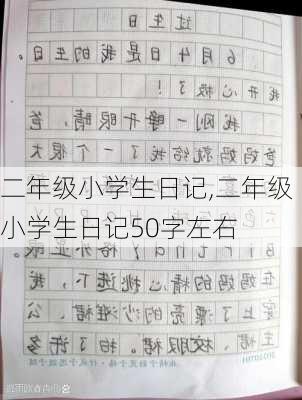 过生日
6月4日是我的生日
我开心极了！
我刚一睁开眼睛，爸
爸妈妈就给我一个很大
二年级小学生日记,二年级
小学生日记50字左右
在妈妈的精心挑选下，我
穿上了漂亮的纱裙、公
主裙、校服裙。拍了许多